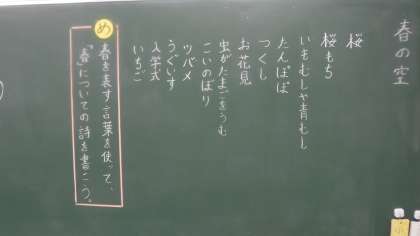 春の空
桜
桜もち
いもむしや青むし
たんぽぽ
つくし
お花見
虫がたまごをうむ
こいのぼり
ツバメ
うぐいす
入学式
いちご
め
春を表す言葉を使って、
「春」についての詩を書こう。